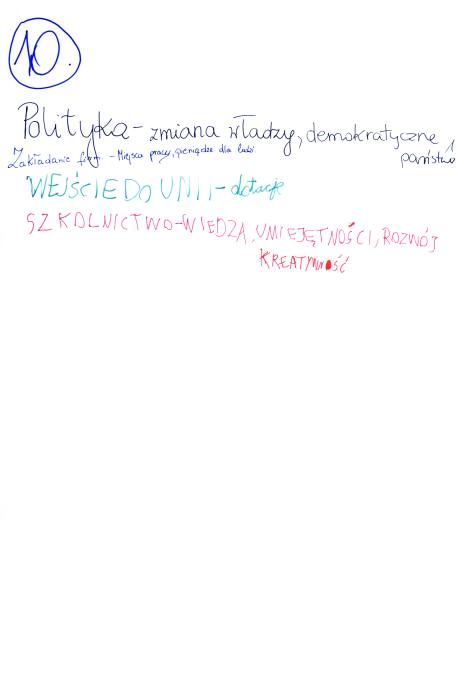 10.
Polityka - zmiana władzy, demokratyczne
państwo
Zakładanie firm - Miejsca pracy, pieniądze dla ludzi
WEJŚCIE DO UNII - dotacje
SZKOLNICTWO - WIEDZA, UMIEJĘTNOŚCI, ROZWÓJ
KREATYWNOŚĆ